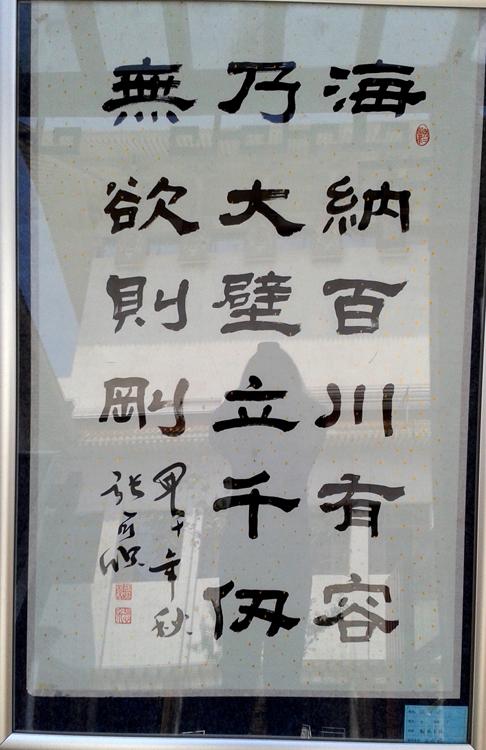 海納百川有容
乃大壁立千仞
無欲則剛
甲午年秋